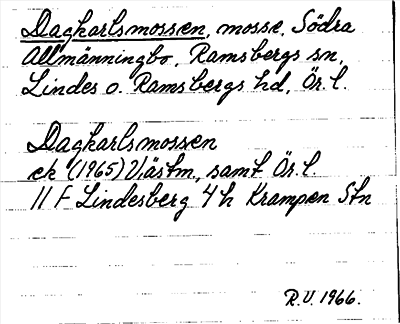 Dagkarlsmossen, mosse, Södra
Allmänningbo, Ramsbergs sn,
Lindes o. Ramsbergs hd, Ör. l.
Dagkarlsmossen
ek (1965) Västm, samt Ör. l.
11 F Lindesberg 4 h Krampen Stn
R.V. 1966.